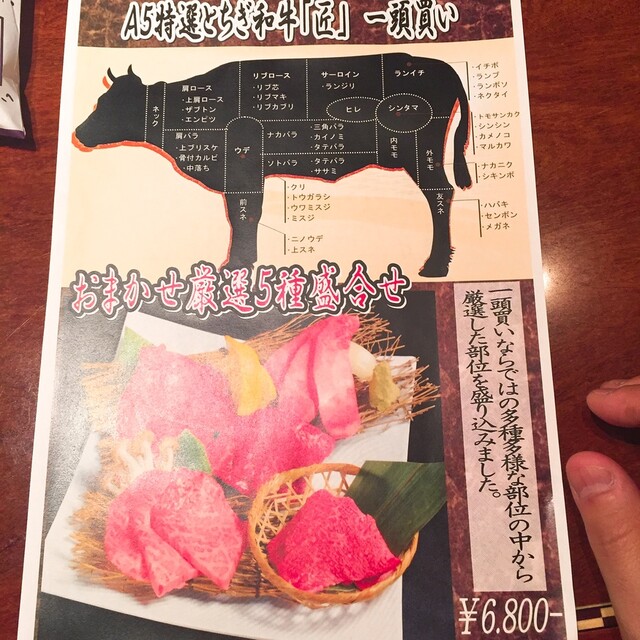 A5特選とちぎ和牛「匠」一頭買い
ネック
肩ロース
・上肩ロース
・ザブトン
・エンピツ
リブロース
・リブ芯
・リブマキ
・リブカブリ
サーロイン
・ランジリ
ランイチ
・イチボ
・ランプ
・ランボソ
・ネクタイ
ヒレ
シンタマ
・トモサンカク
・シンシン
・カメノコ
・マルカワ
肩バラ
・上ブリスケ
・骨付カルビ
・中落ち
ウデ
ナカバラ
・三角バラ
・カイノミ
・タテバラ
ソトバラ
・タテバラ
・ササミ
内モモ
外モモ
・ナカニク
・シキンボ
・クリ
・トウガラシ
・ウワミスジ
・ミスジ
前スネ
・ニノウデ
・上スネ
友スネ
・ハバキ
・センボン
・メガネ
おまかせ厳選5種盛合せ
一頭買いならではの多種多様な部位の中から
厳選した部位を盛り込みました。
¥6.800-